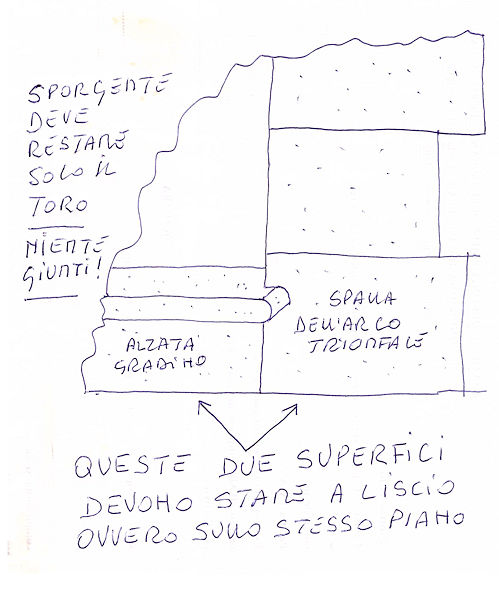 SPORGENTE
DEVE
RESTARE
SOLO IL
TORO
NIENTE
GIUNTI!
SPALLA
DELL'ARCO
TRIONFALE
ALZATA
GRADINO
QUESTE DUE SUPERFICI
DEVONO STARE A LISCIO
OVVERO SULLO STESSO PIANO